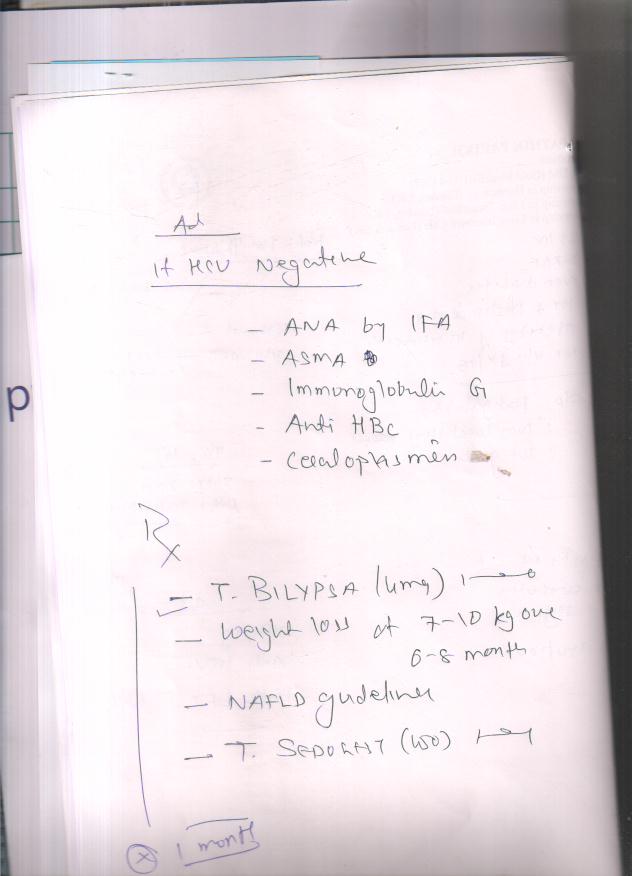 Ad
If HCV Negative
- ANA by IFA
- ASMA
- Immunoglobulin G
- Anti HBc
- Ceruloplasmin
Rx
- T. BILYPSA (4mg) 1
- Weight loss of 7-10 kg over
6-8 month
- NAFLD guidelines
- T.
x 1 month
p